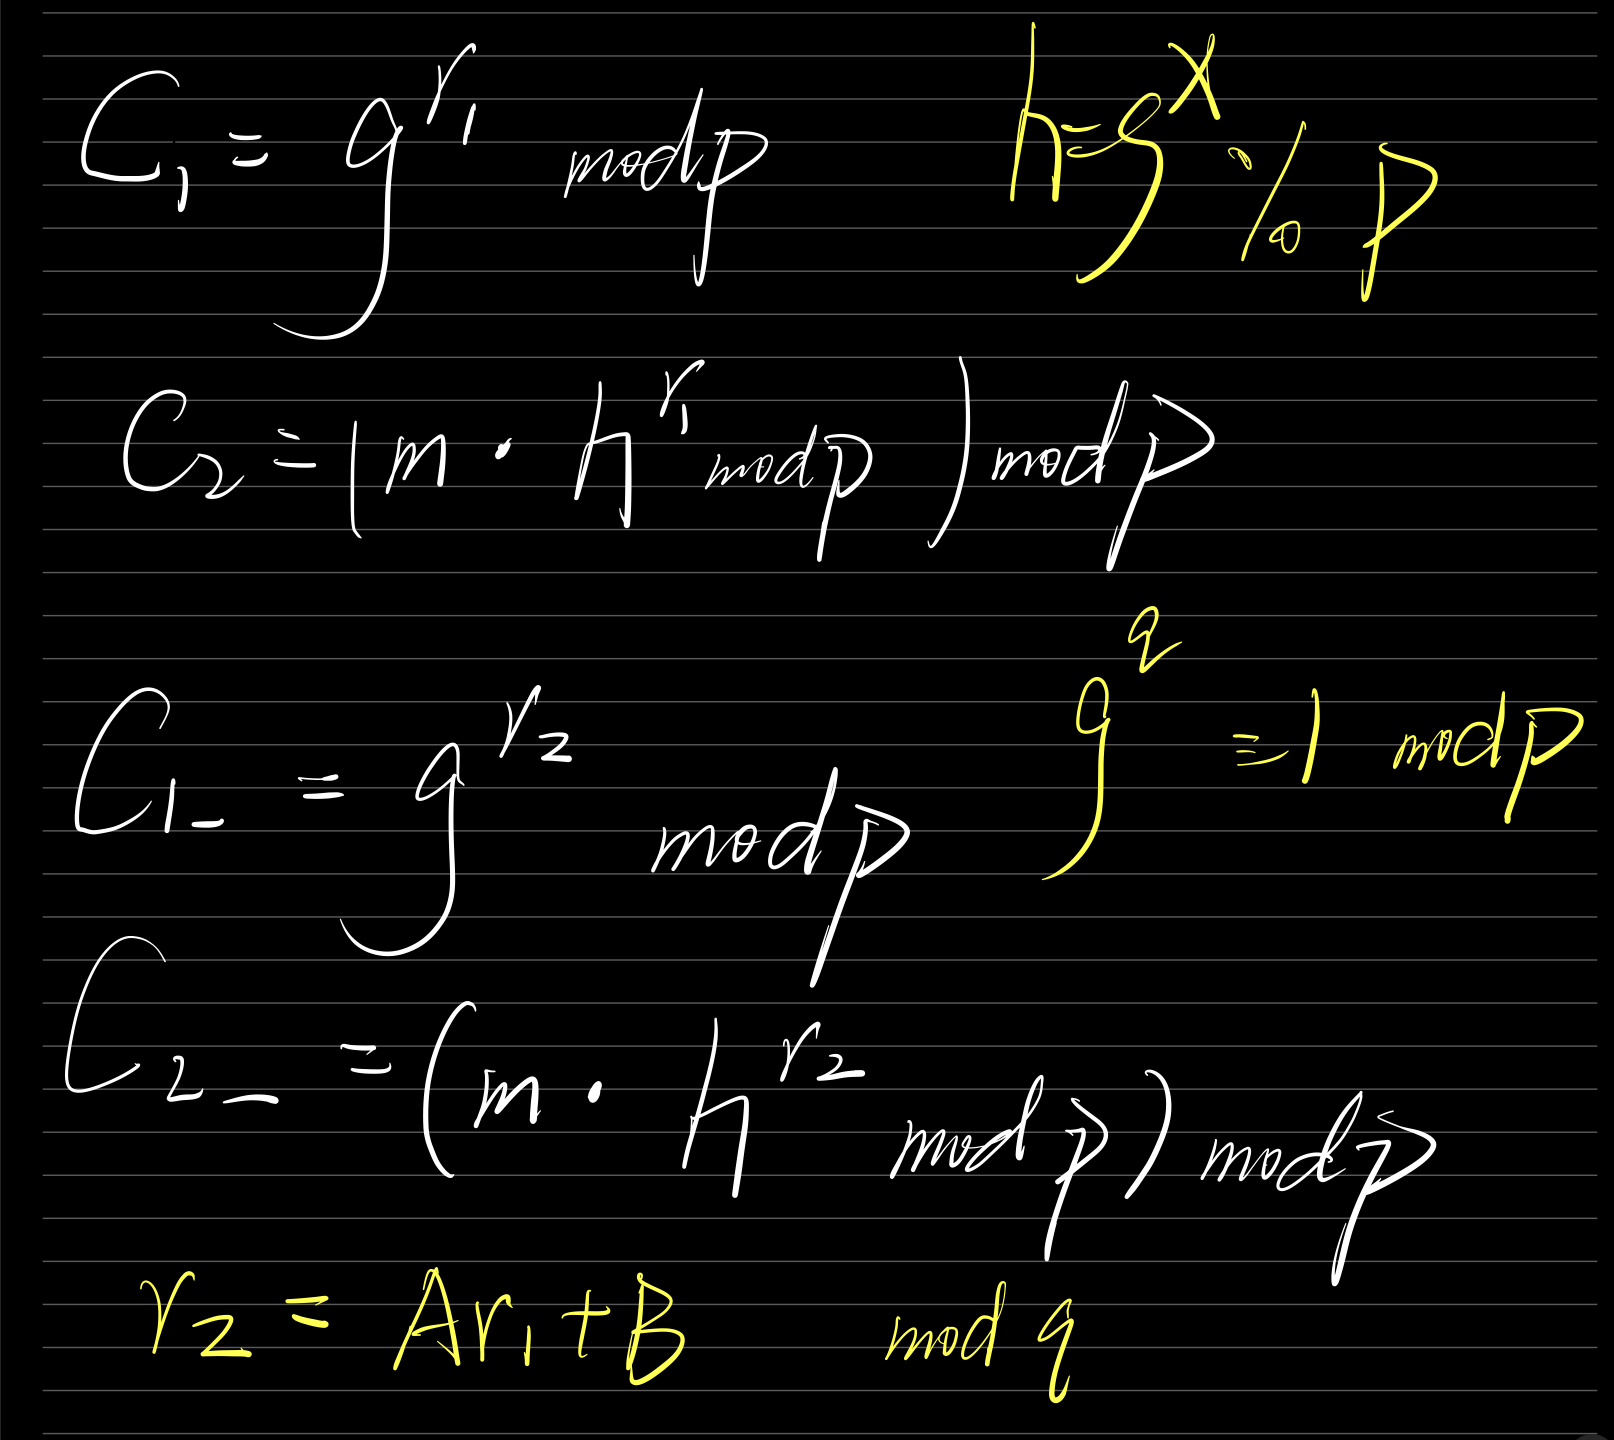 C₁ = g^r₁ mod p
h = g^x % p
C₂ = (m · h^r₁ mod p) mod p
C₁_ = g^r₂ mod p
g^q ≡ 1 mod p
C₂_ = (m · h^r₂ mod p) mod p
r₂ = Ar₁ + B mod q